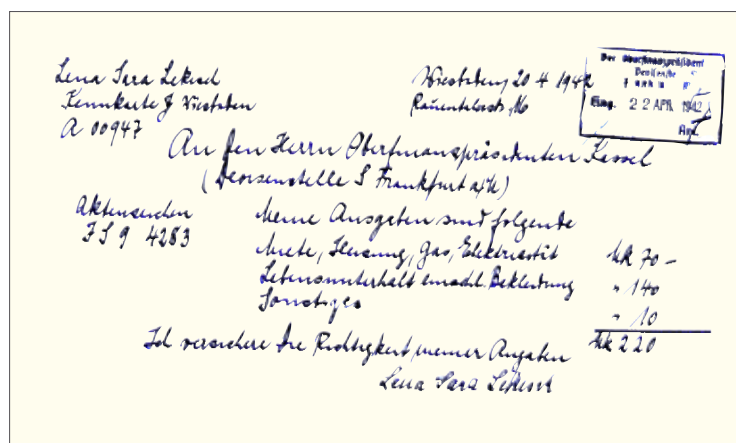 Lena Sara Lekisch
Wiesbaden 20 4 1942
Kennkarte J Wiesbaden
Rauenthalerstr. 16
A 00947
Der Oberfinanzpräsident
Devisenstelle S
Eing. 22 APR. 1942
Anl.
An den Herrn Oberfinanzpräsidenten Kassel
(Devisenstelle S Frankfurt a/M)
Aktenzeichen
JS 9 4283
Meine Ausgaben sind folgende
Miete, Heizung, Gas, Elektrizität Mk 70 –
Lebensunterhalt einschl. Bekleidung " 140
Sonstiges " 10
Mk 220
Ich versichere die Richtigkeit meiner Angaben
Lena Sara Lekisch